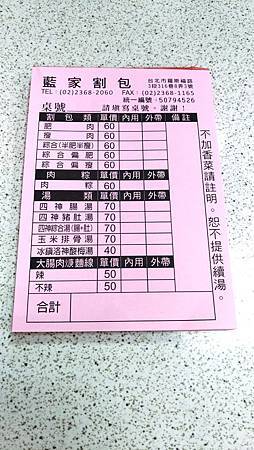 藍家割包
台北市羅斯福路
3段316巷8弄3號
TEL：(02)2368-2060 FAX：(02)2368-1165
統一編號：50794526
桌號 請填寫桌號。謝謝！
割包類 單價 內用 外帶 備註
肥肉 60
瘦肉 60
綜合(半肥半瘦) 60
綜合偏肥 60
綜合偏瘦 60
肉粽 單價 內用 外帶
肉粽 60
湯類 單價 內用 外帶
四神腸湯 70
四神豬肚湯 70
四神綜合湯(腸+肚) 70
玉米排骨湯 70
冰鎮洛神酸梅湯 40
大腸肉焿麵線 單價 內用 外帶
辣 50
不辣 50
合計
不加香菜請註明。恕不提供續湯。